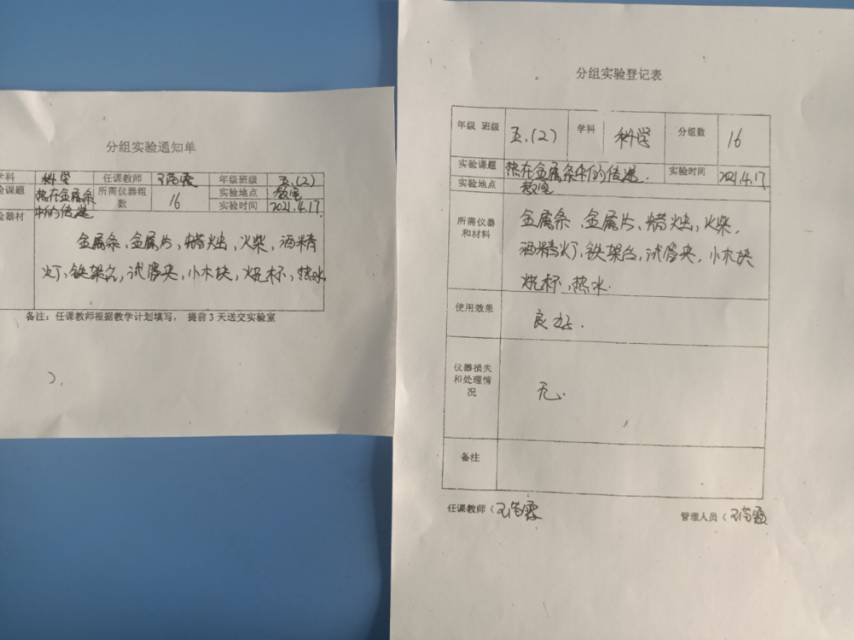 分组实验通知单
学科 科学 任课教师 年级班级 五.(2)
实验课题 热在金属条中的传递 所需仪器组数 16 实验地点 教室
实验时间 2021.4.17
实验器材 金属条,金属片,蜡烛,火柴,酒精
灯,铁架台,试管夹,小木块,烧杯,热水
备注:任课教师根据教学计划填写, 提前3天送交实验室
分组实验登记表
年级 班级 五.(2) 学科 科学 分组数 16
实验课题 热在金属条中的传递. 实验时间 2021.4.17
实验地点 教室
所需仪器和材料 金属条,金属片,蜡烛,火柴,
酒精灯,铁架台,试管夹,小木块
烧杯,热水.
使用效果 良好.
仪器损失和处理情况 无.
备注
任课教师( 管理人员(